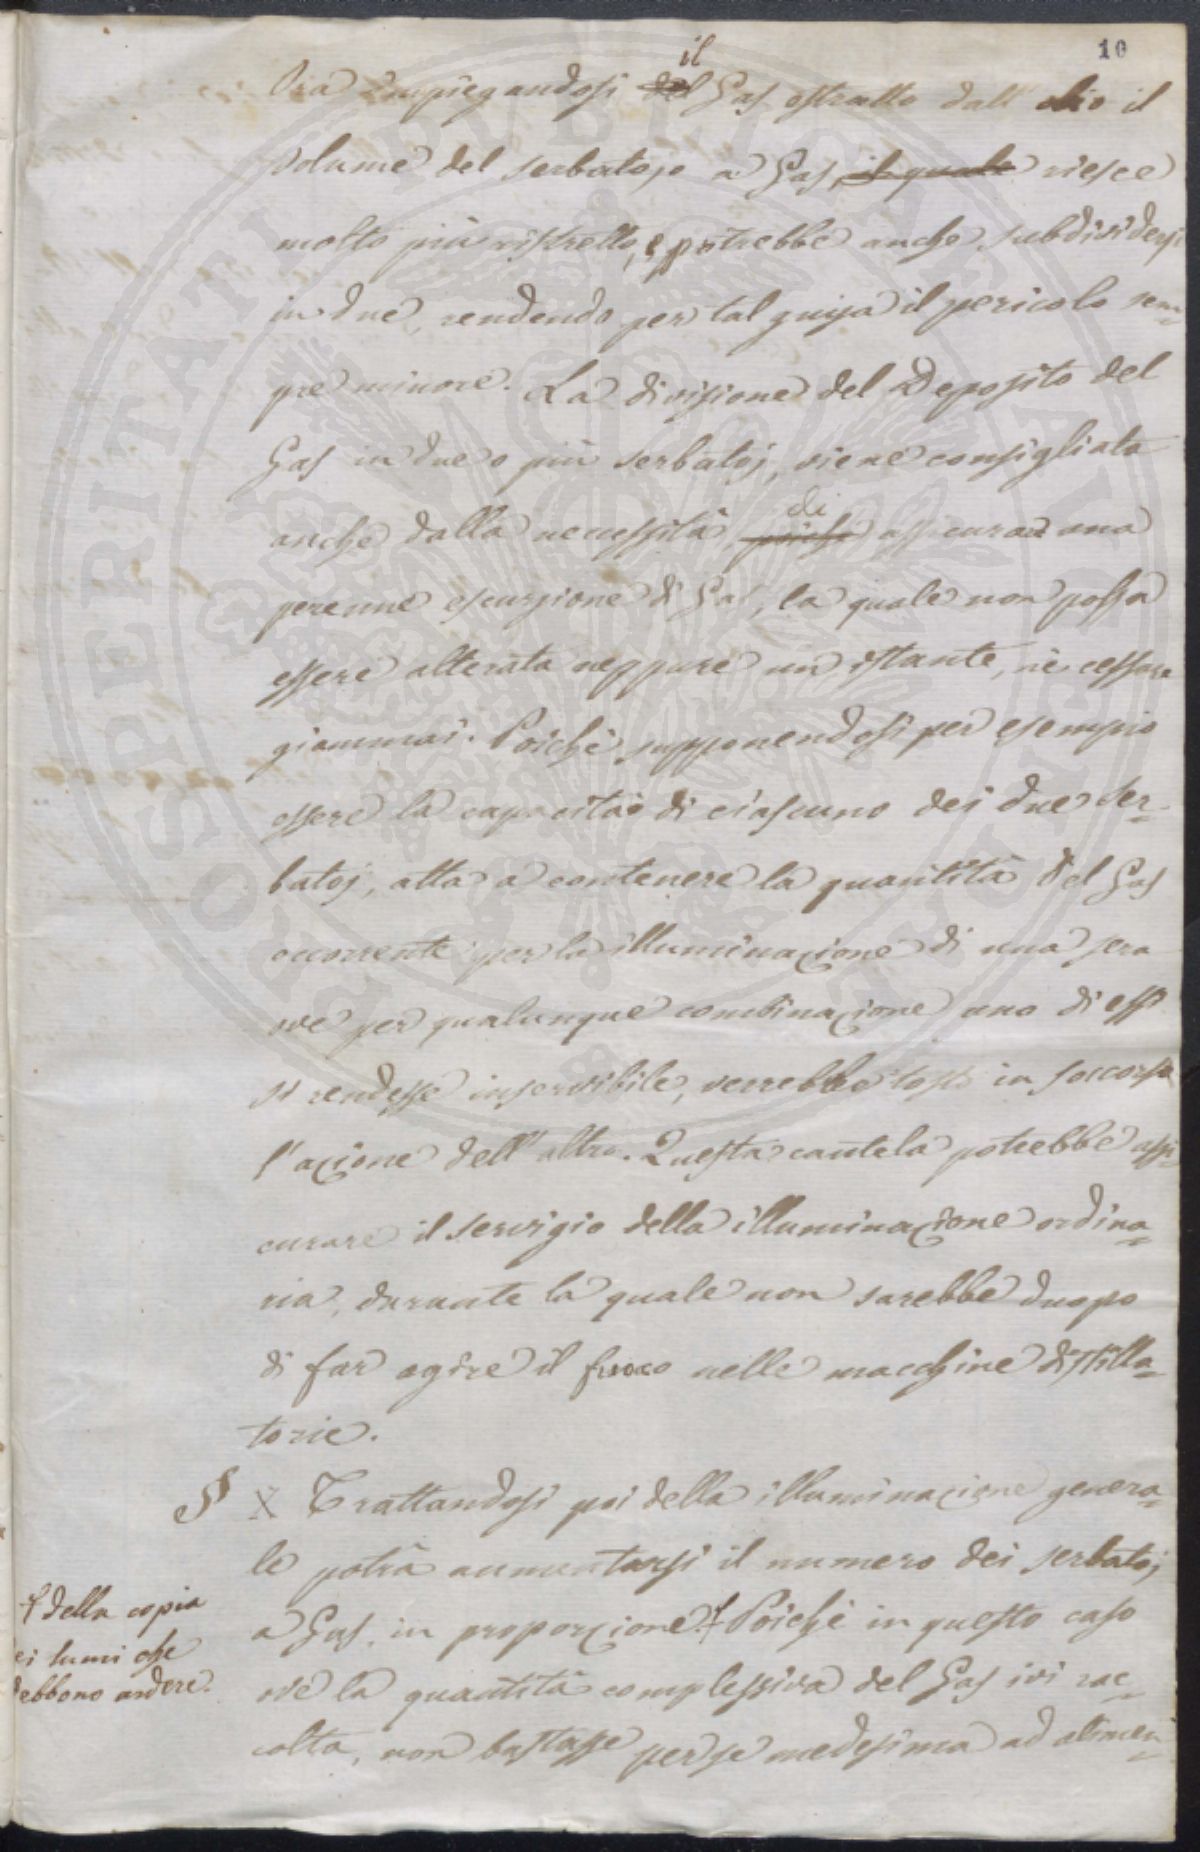 10
il
Ora Impiegandosi del Gas estratto dall' olio il
Volume del serbatojo a Gas, il quale riesce
molto più ristretto, e potrebbe anche subdividersi
in due, rendendo per tal guisa il pericolo sem=
pre minore. La divisione del Deposito del
Gas in due o più serbatoj, viene consigliata
di
anche dalla necessità, poiche assicurare una
perenne escursione di Gas, la quale non possa
essere alterata neppure un istante, nè cessare
giammai. Poichè supponendosi per esempio
essere la capacità di ciascuno dei due Ser=
batoj, atta a contenere la quantità del Gas
occorrente per la illuminazione di una sera
ove per qualunque combinazione uno di essi
si rendesse inservibile, verrebbe tosto in soccorso
l'azione dell'altro. Questa cautela potrebbe assi=
curare il servigio della illuminazione ordina=
ria, durante la quale non sarebbe duopo
di far agire il fuoco nelle macchine distilla=
torie.
§ X Trattandosi poi della illuminazione genera=
le potrà aumentarsi il numero dei serbatoj
a Gas, in proporzione. Poichè in questo caso
ove la quantità complessiva del Gas ivi rac=
colta, non bastasse per se medesima ad alimen=
della copia
ei lumi che
debbono ardere.
PROSPERITATI PUBLICAE AUGENDAE